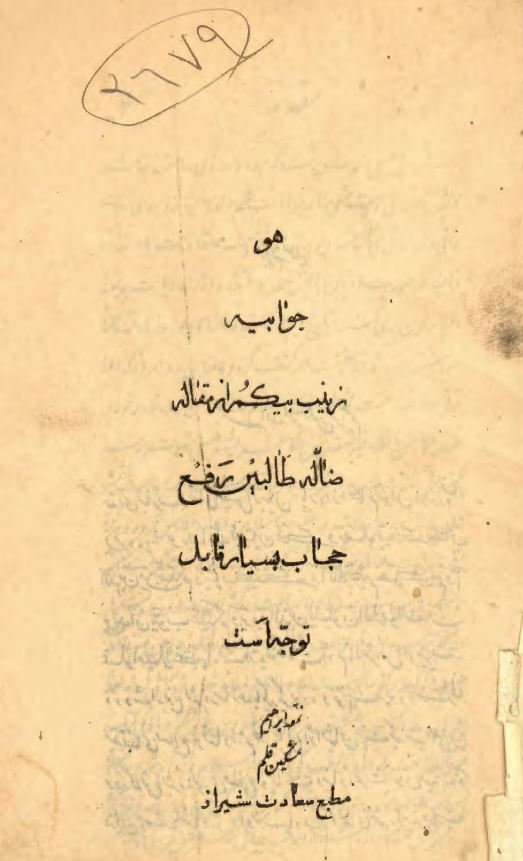 ۲۶۷۹
هو
جوابیه
زینب بیگم از مقاله
ضالّه طالبین رفع
حجاب بسیار قابل
توجّه است
ابراهیم
مشگین قلم
مطبع سعادت شیراز